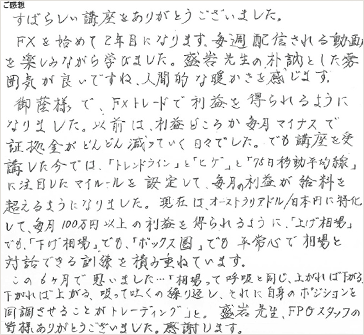 ご感想
すばらしい講座をありがとうございました。
FXを始めて2年目になります。毎週配信される動画
を楽しみながら学びました。盛岩先生の朴訥とした雰
囲気が良いですね、人間的な暖かさを感じます。
御蔭様で、FXトレードで利益を得られるように
なりました。以前は、利益どころか毎月マイナスで
証拠金がどんどん減っていく日々でした。でも講座を受
講した今では、「トレンドライン」と「ヒゲ」と「75日移動平均線」
に注目したマイルールを設定して、毎月の利益が給料を
超えるようになりました。現在は、オーストラリアドル/日本円に特化
して、毎月100万円以上の利益を得られるように、「上げ相場」
でも、「下げ相場」でも、「ボックス圏」でも平常心で相場と
対話できる訓練を積み重ねています。
この6ヶ月で思いました…「相場って呼吸と同じ、上がれば下がる、
下がれば上がる、吸って吐くの繰り返し、それに自身のポジションを
同調させることがトレーディング」と。盛岩先生、FPOスタッフの
皆様ありがとうございました。感謝します。